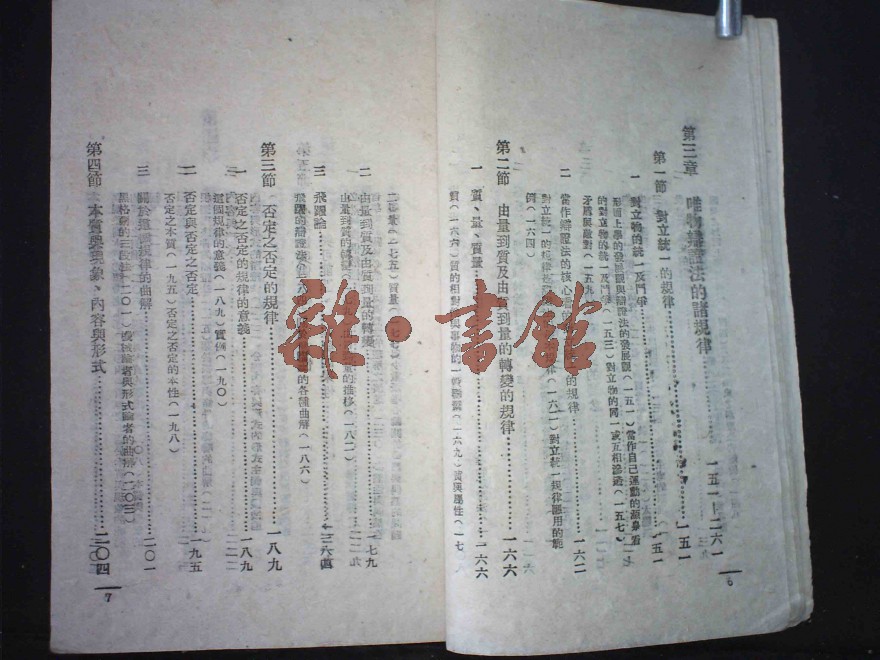 第三章 唯物辯證法的諸規律……一五一—二六一
第一節 對立統一的規律……一五一
一 對立物的統一及鬥爭……一五一
形而上學的發展觀與辯證法的發展觀(一五一)當作自己運動的源泉看
的對立物的統一及鬥爭(一五三)對立物的同一或互相滲透(一五七)
矛盾與敵對(一五九)
二 當作辯證法的核心看的 的規律……一六二
對立統一的規律 (一六二)對立統一規律應用的範
例(一六四)
第二節 由量到質及由質到量的轉變的規律……一六六
一 質、量、質量……一六六
質(一六六)質的相對 與事物的一般聯繫(一六九)質與屬性(一七
(一七五)質量(一七七)
二 由量到質及由質到量的轉變……一七九
由量到質的轉變 量的推移(一八二)
三 飛躍論
飛躍的辯證法 的各種曲解(一八六)
第三節 否定之否定的規律……一八九
一 否定之否定的規律的意義……一八九
這個規律的意義(一八九)實例(一九〇)
二 否定與否定之否定……一九五
否定之本質(一九五)否定之否定的本性(一九八)
三 關於這個規律的曲解……二〇一
黑格爾的三段法(二〇一)機械論者與形式論者的曲解(二〇三)
第四節 本質與現象、內容與形式……二〇四
6
7
雜·書館